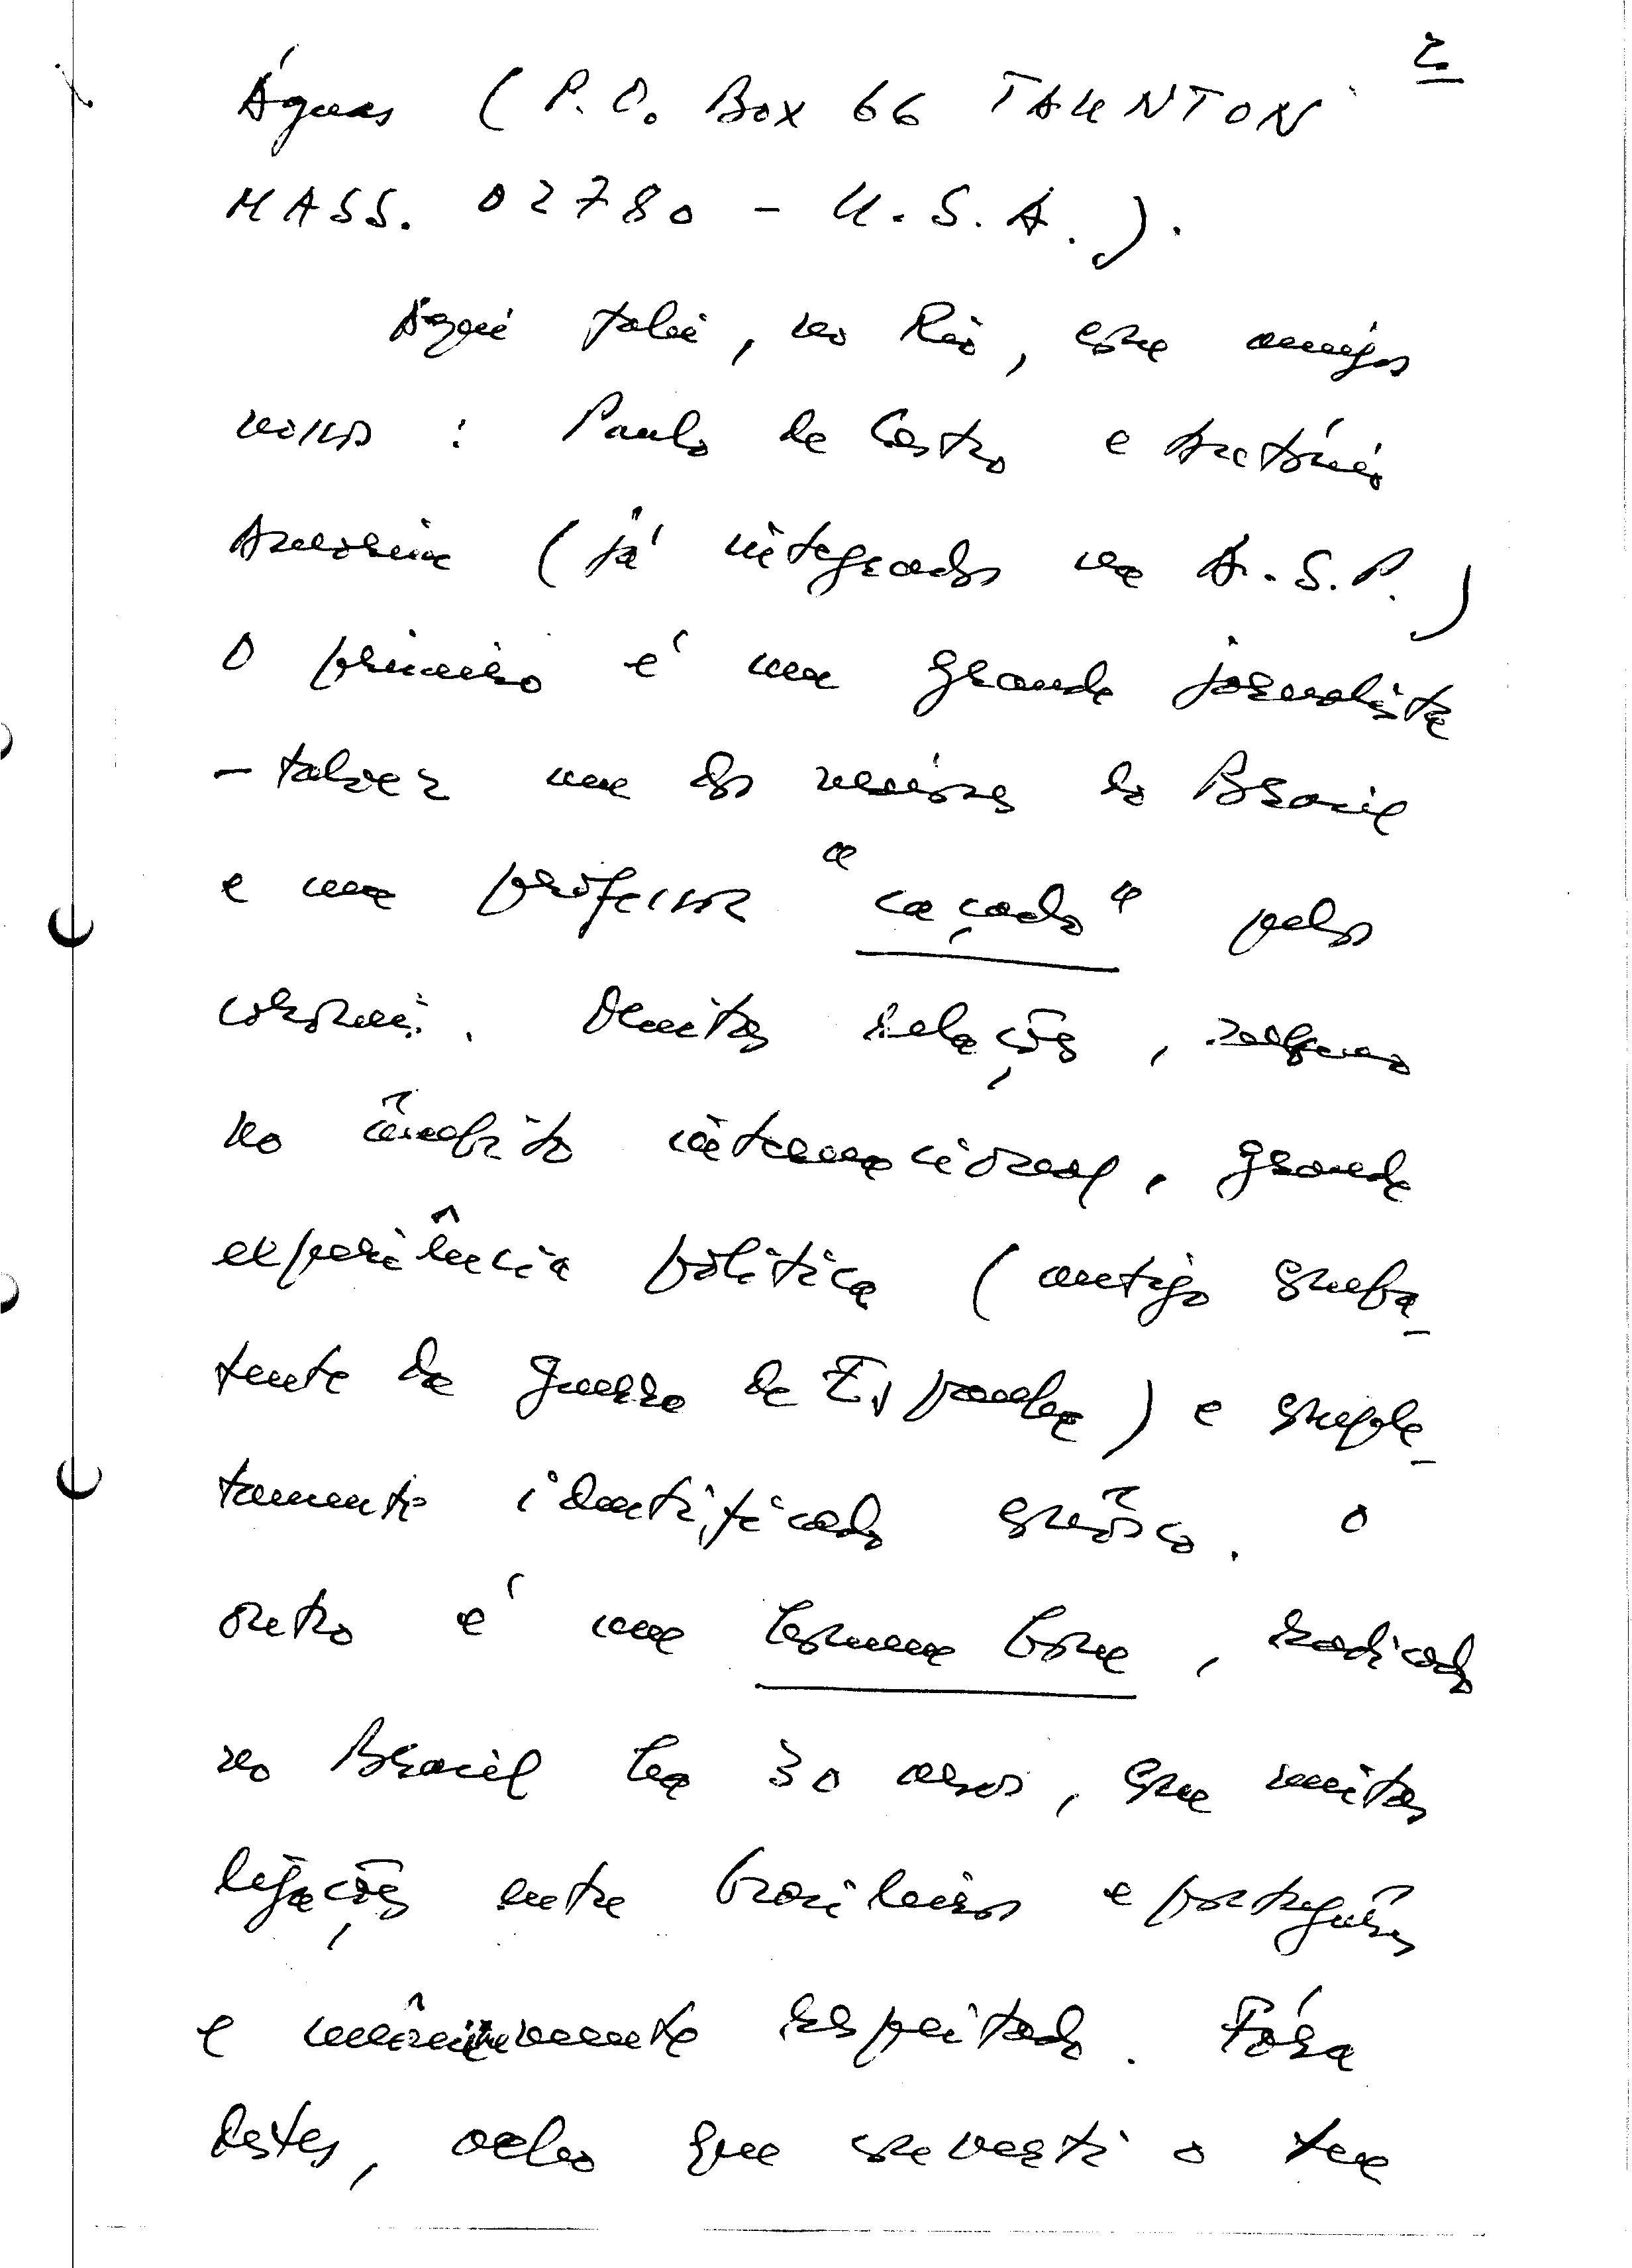 2.
Águas (P.O. Box 66 TAUNTON
MASS. 02780 - U.S.A.).
Aqui falei, no Rio, com amigos
nossos: Paulo de Castro e António
Amorim (já integrado na A.S.P.)
O primeiro é um grande jornalista
- talvez um dos maiores do Brasil
e um professor "caçado" pelos
coroneis. Muitas relações, mesmo
no âmbito internacional, grande
experiência politica (antigo comba-
tente da guerra de Espanha) e comple-
tamente identificado comnôsco. O
outro é um homem bom, radicado
no Brasil ha 30 anos, com muitas
ligações entre brasileiros e portuguêses
e respeitado. Fóra
destes, acho que converti o teu